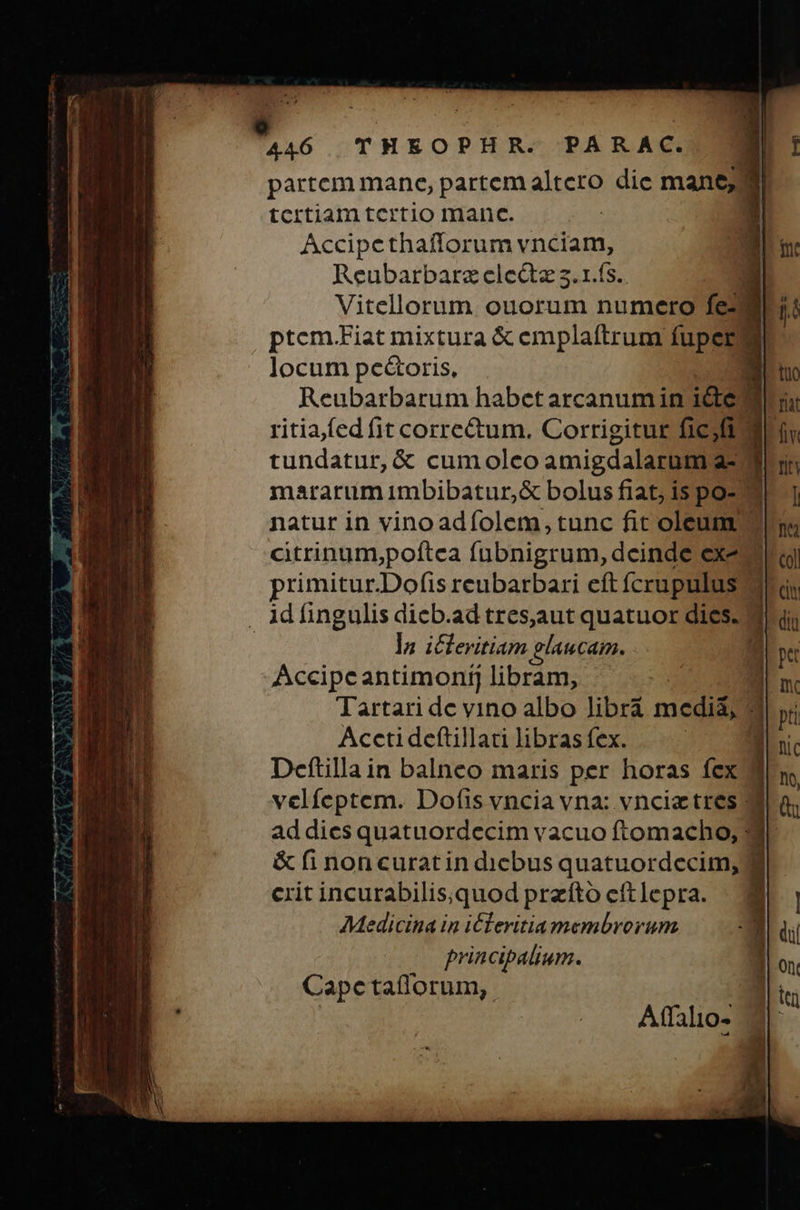 446 THEOPHR. PARAC.
partem mane, partem altero die mane,
tertiam tertio mane.
Accipe thaſſorum vnciam,
Reubarbaræ electæ ʒ.1.ſs.
Vitellorum ouorum numero ſe-
ptem. Fiat mixtura & emplaſtrum ſuper
locum pectoris,
Reubarbarum habet arcanum in icte
ritia, ſed ſit correctum. Corrigitur ſic, ſi
tundatur, & cum oleo amigdalarum a-
mararum imbibatur, & bolus fiat, is po-
natur in vino ad ſolem, tunc fit oleum
citrinum, poſtea ſubnigrum, deinde ex-
primitur. Doſis reubarbari eſt ſcrupulus
id ſingulis dieb. ad tres, aut quatuor dies.
In icteritiam glaucam.
Accipe antimonij libram,
Tartari de vino albo librã mediã,
Aceti deſtillati libras ſex.
Deſtilla in balneo maris per horas ſex
vel ſeptem. Doſis vncia vna: vnciæ tres
ad dies quatuordecim vacuo ſtomacho,
& ſi non curat in diebus quatuordecim,
erit incurabilis, quod præſtò eſt lepra.
Medicina in icteritia membrorum
principalium.
Cape taſſorum,
Aſſalio-